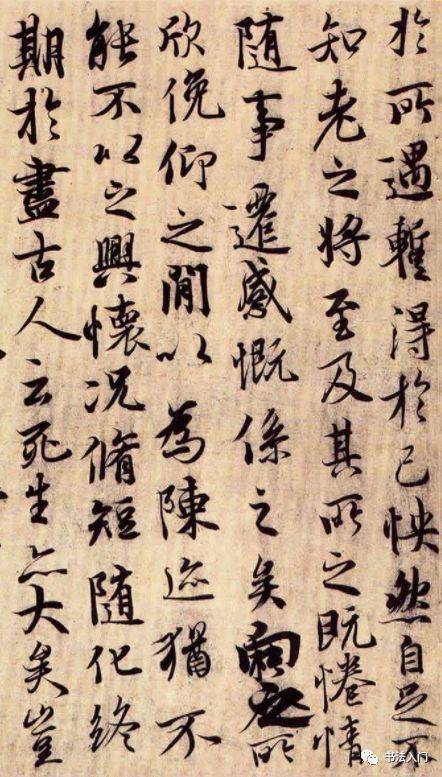 於所遇暫得於己怏然自足不
知老之將至及其所之既惓情
随事遷感慨係之矣向之所
欣俛仰之閒以為陳迹猶不
能不以之興懷況脩短随化終
期於盡古人云死生亦大矣豈
书法入门